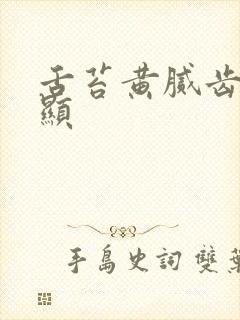 舌苔黄腻齿
顯
手島史詞 雙葉